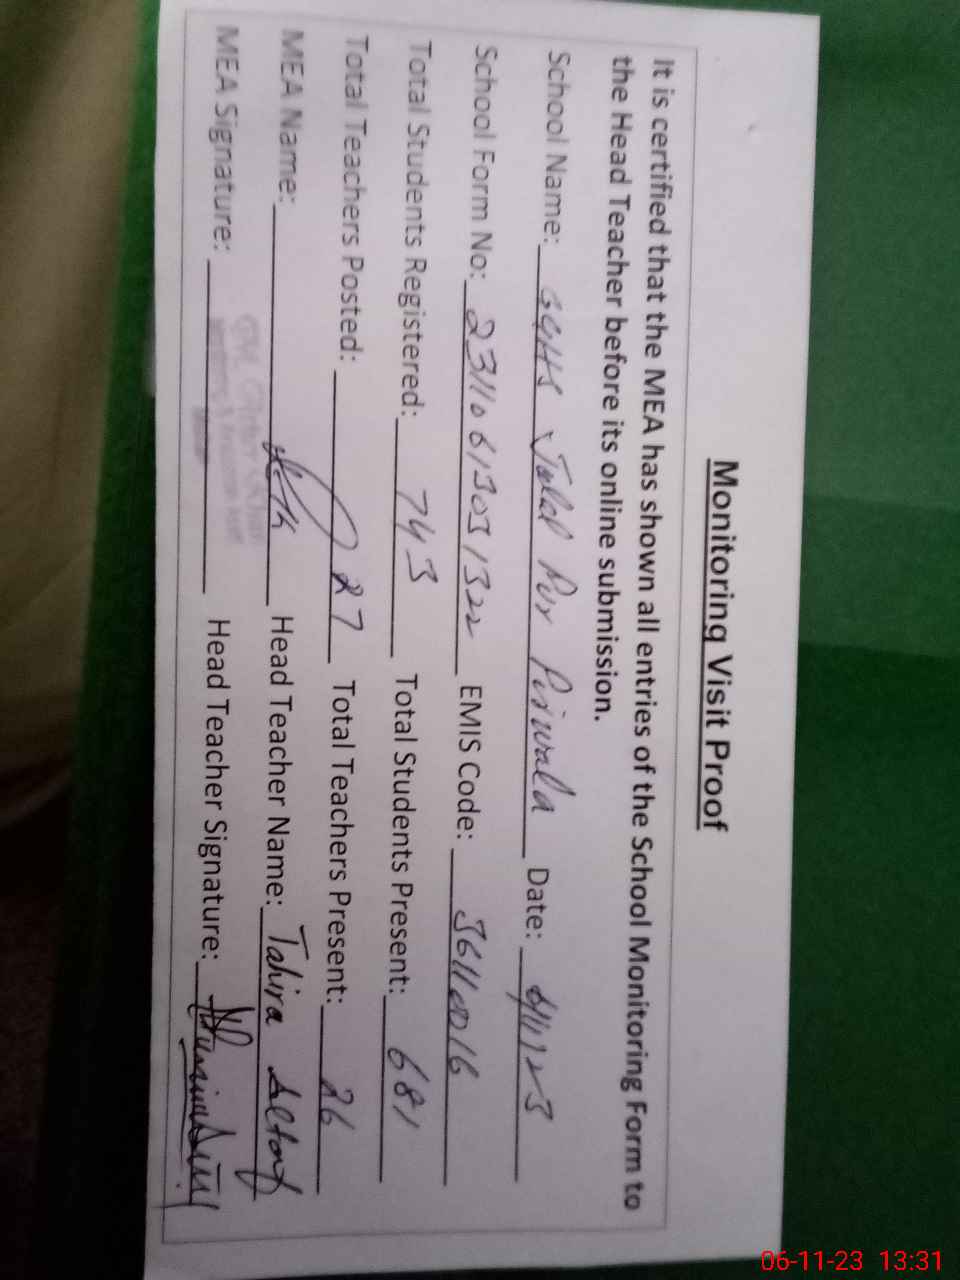 Monitoring Visit Proof
It is certified that the MEA has shown all entries of the School Monitoring Form to
the Head Teacher before its online submission.
School Name: GGHS Jalal Pur Pirwala Date: 6/11/23
School Form No: 23110613031322 EMIS Code: 36110016
Total Students Registered: 743 Total Students Present: 681
Total Teachers Posted: 27 Total Teachers Present: 26
MEA Name: Head Teacher Name: Tahira Altaf
MEA Signature: Head Teacher Signature:
06-11-23 13:31